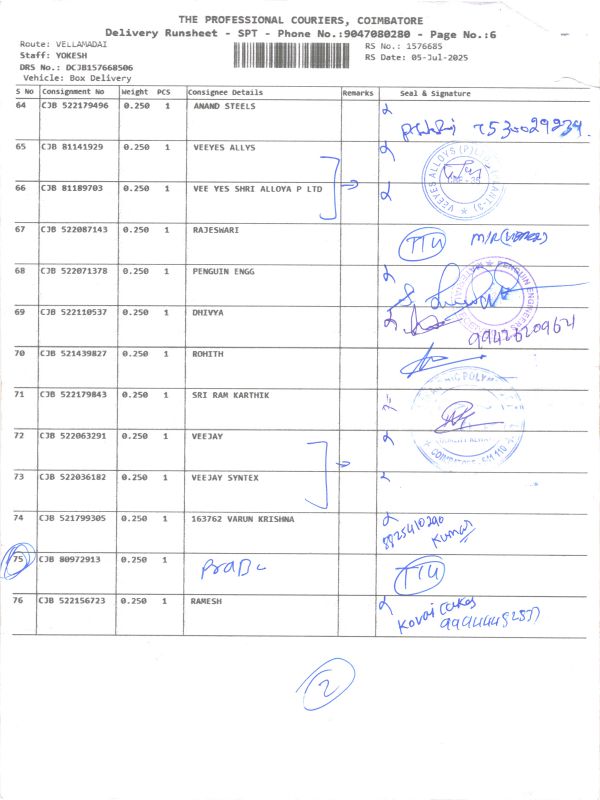 THE PROFESSIONAL COURIERS, COIMBATORE
Delivery Runsheet - SPT - Phone No.:9047080280 - Page No.:6
Route: VELLAMADAI
RS No.: 1576685
Staff: YOKESH
RS Date: 05-Jul-2025
DRS No.: DCJB157668506
Vehicle: Box Delivery
S No Consignment No Weight PCS Consignee Details Remarks Seal & Signature
64 CJB 522179496 0.250 1 ANAND STEELS
65 CJB 81141929 0.250 1 VEEYES ALLYS
66 CJB 81189703 0.250 1 VEE YES SHRI ALLOYA P LTD
67 CJB 522087143 0.250 1 RAJESWARI TTU
68 CJB 522071378 0.250 1 PENGUIN ENGG
PENGUIN ENGINEERS
69 CJB 522110537 0.250 1 DHIVYA 99426209621
70 CJB 521439827 0.250 1 ROHITH
71 CJB 522179843 0.250 1 SRI RAM KARTHIK
72 CJB 522063291 0.250 1 VEEJAY
73 CJB 522036182 0.250 1 VEEJAY SYNTEX
74 CJB 521799305 0.250 1 163762 VARUN KRISHNA
8825410290
Kumar
75 CJB 80972913 0.250 1 TTU
76 CJB 522156723 0.250 1 RAMESH
Kovai
2